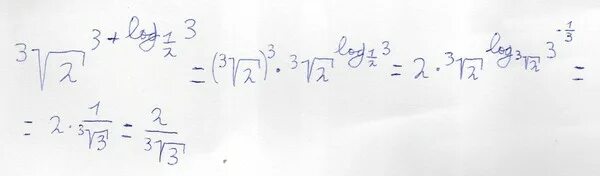 ∛2^(3+log_{1/2} 3) = (∛2)^3 · ∛2^(log_{1/2} 3) = 2 · ∛2^(log_{∛2} 3^{-1/3}) =
= 2 · 1/∛3 = 2/∛3